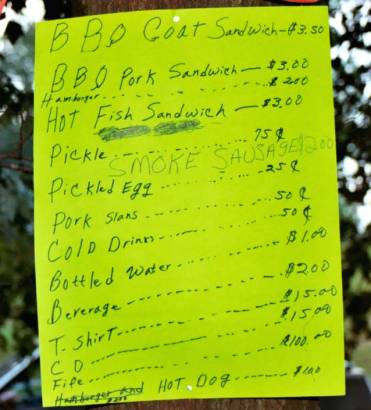 BBQ Goat Sandwich - $3.50
BBQ Pork Sandwich - $3.00
Hamburger $2.00
HOT Fish Sandwich - $3.00
Pickle 75¢
SMOKE SAUSAGE $2.00
Pickled Egg 25¢
Pork Skins 50¢
COLD Drinks 50¢
Bottled Water $1.00
Beverage $2.00
T. Shirt $15.00
CD $15.00
Fife $100.00
Hamburger and HOT DOG $1.00